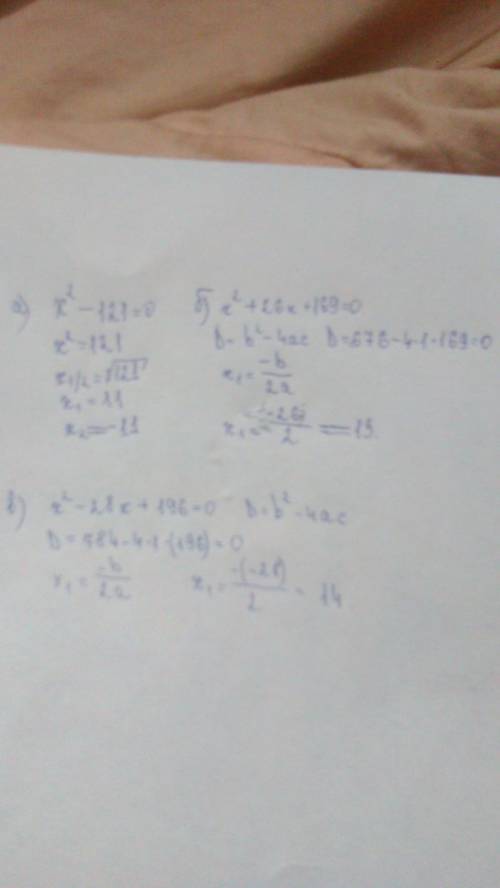 а) x² - 121 = 0
x² = 121
x₁/₂ = √121
x₁ = 11
x₂ = -11
б) x² + 26x + 169 = 0
D = b² - 4ac D = 676 - 4·1·169 = 0
x₁ = -b/2a
x₁ = -26/2 = -13
в) x² - 28x + 196 = 0 D = b² - 4ac
D = 784 - 4·1·(196) = 0
x₁ = -b/2a x₁ = -(-28)/2 = 14